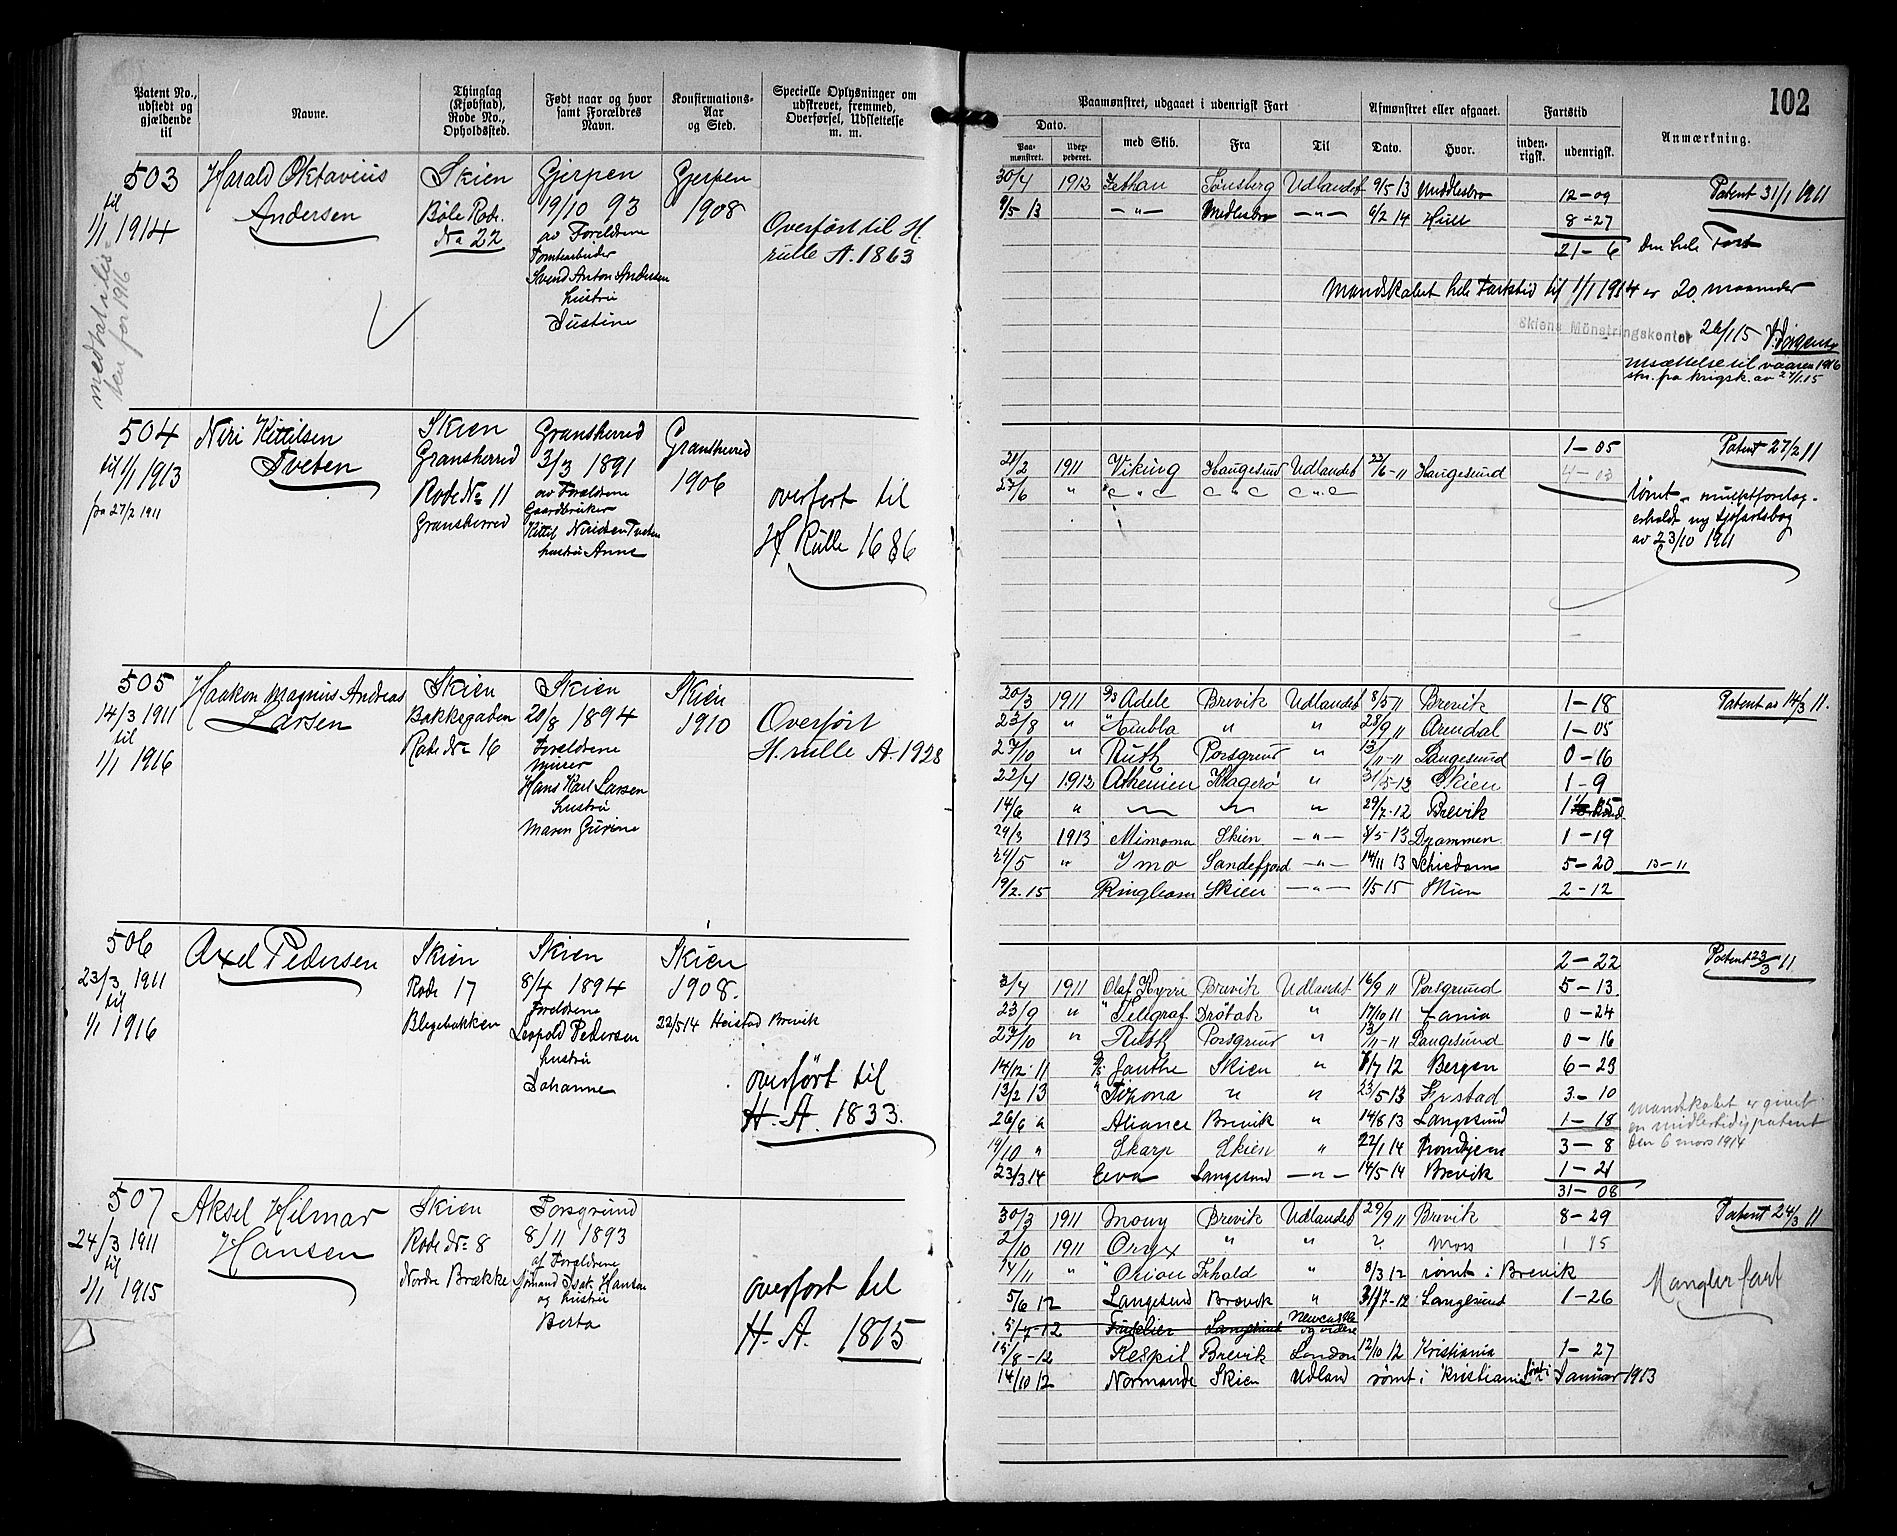 Patent No., udstedt og gjældende til
Navne.
Thinglag (Kjøbstad), Rode No., Opholdssted.
Født naar og hvor samt Forældres Navn.
Konfirmations-Aar og Sted.
Specielle Oplysninger om udstrevet, fremmed, Overførsel, Udslettelse m. m.
Paamønstret, udgaaet i udenrigsk Fart
Afmønstret eller afgaaet.
Fartstid
102
Dato.
Paa-mønstret.
Udex-pederet.
med Skib.
Fra
Til
Dato.
Hvor.
inden-rigsk.
udenrigsk.
Anmærkning.
503
til
1/1 1914
Harald Oktavius
Andersen
Skien
Bøle Rode.
No 22
Gjerpen
19/10 93
av Foreldrene
Tomtearbeider
Svend Anton Andersen
hustru
Justine
Gjerpen
1908
Overført til H.
rulle A. 1863
30/4 1912 Tønsberg Udlandet 9/5 13 Middlesbro 12-09 Patent 31/1 1911
9/5 13 -"- Midlesbro -"- 6/2 14 Hull 8-27
21-6 den hele Fart
Mandskabet hele Fartstid til 1/1 1914 er 20 maaneder
Skiens Mönstringskontor 26/1 15
utsættelse til vaaren 1916
skr. fra krigsk. av 27/1.15
504
til 1/1 1913
fra 27/2 1911
Neri Kittilsen
Tveten
Skien
Gransherred
Rode No 11
Gransherred
Gransherred
3/3 1891
av Foreldrene
Gaardbruker
Kittil
hustru Anne
Gransherred
1906
overført til
H Rulle 1686
1-05 Patent 27/2 11
21/2 1911 Viking Haugesund Udlandet 22/6-11 Haugesund 4-03
27/6 "
rømt
erholdt ny sjøfartsbog
av 23/10 1911
505
14/3 1911
til
1/1 1916
Haakon Magnus Andreas
Larsen
Skien
Bakkegaden
Rode No 16
Skien
20/8 1894
Foreldrene
murer
Hans Karl Larsen
hustru
Maren Gurine
Skien
1910
Overført
H. rulle A. 1928
20/3 1911 Adele Brevik Udlandet 8/5 11 Brevik 1-18 Patent av 14/3 11.
23/8 " " " 28/9 11 Arendal 1-05
27/10 " Ruth Porsgrund " 13/11-11 Langesund 0-16
22/4 1912 Athenien Kragerø " 31/5-12 Skien 1-9
14/6 " " 29/7-12 Brevik
29/3 1913 Mimona Skien -"- 8/5-13 Drammen 1-19
24/5 " Ymo Sandefjord -"- 14/11 13 Schiedam 5-20 13-11
19/2.15 Ringhorn Skien -"- 1/5 15 Skien 2-12
506
23/3 1911
til
1/1 1916
Axel Pedersen
Skien
Rode 17
Blegebakken
Skien
8/4 1894
Foreldrene
Leopold Pedersen
hustru
Johanne
Skien
1908.
22/5 14 Heistad Brevik
overført til
H. A. 1833.
2-22 Patent 23/3 11
3/4 1911 Olaf Kyrre Brevik Udlandet 16/9 11 Porsgrund 5-13.
23/9 " " Telegraf Drøbak " 17/10 11 0-24
27/10 " Ruth Porsgrund " 13/11-11 Langesund 0-16
14/12-11 Janthe Skien " 8/7 12 Bergen 6-23
13/2 13 " " " 23/5 13 3-10
26/6 " Aliance Brevik " 14/8 13 Langesund 1-18
14/10 " Skarp Skien " 22/1 14 Trondhjem 3-8
23/3 14 Eva Langesund -"- 14/5-14 Brevik 1-21
31-08
mandskabet er givet
en midlertidig patent
den 6 mars 1914
507
24/3 1911
til
1/1 1915
Aksel Hilmar
Hansen
Skien
Rode No 8
Nordre Brække
Porsgrund
8/11 1893
af Foreldrene
Isak. Hansen
og hustru
Berta
overført til
H. A. 1875
30/3 1911 Brevik Udlandet 29/9 11 Brevik 8-29 Patent 24/3 11
2/10 1911 Oryx " " ? Moss 1 15
14/11 " " Orion " 8/3 12 rømt i Brevik
5/6 12 Langesund Brevik " 31/7-12 Langesund 1-26
5/7-12 Langesund Newcastle og videre
15/8-12 Respil Brevik London 12/10 12 Kristiania 1-27
14/10 12 Normande Skien Udland rømt i Kristiania Januar 1913
Mangler fart